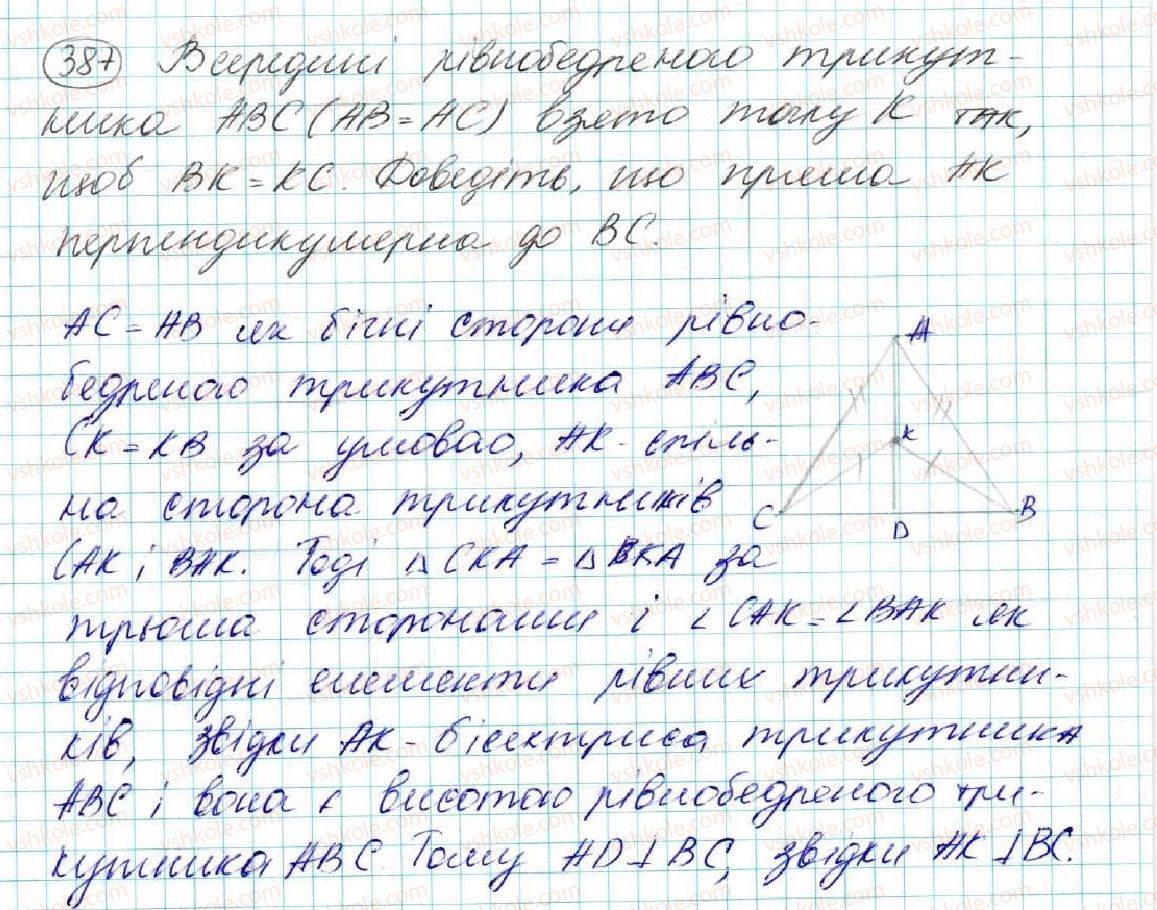 387 Всередині рівнобедреного трикут-
ника ABC (AB = AC) взято точку K так,
щоб BK = KC. Доведіть, що пряма AK
перпендикулярна до BC.
AC = AB як бічні сторони рівно-
бедреного трикутника ABC,
CK = KB за умовою, AK - спіль-
на сторона трикутників
CAK і BAK. Тоді △CKA = △BKA за
трьома сторонами і ∠CAK = ∠BAK як
відповідні елементи рівних трикутни-
ків, звідки AK - бісектриса трикутника
ABC і вона є висотою рівнобедреного три-
кутника ABC. Тому AD⊥BC, звідки AK⊥BC.
A
K
C
D
B
vshkole.com